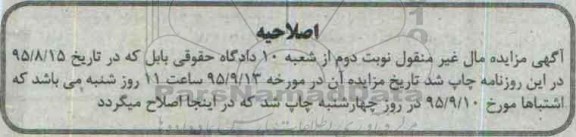 اصلاحیه
آگهی مزایده مال غیر منقول نوبت دوم از شعبه ۱۰ دادگاه حقوقی بابل که در تاریخ ۹۵/۸/۱۵
در این روزنامه چاپ شد تاریخ مزایده آن در مورخه ۹۵/۹/۱۳ ساعت ۱۱ روز شنبه می باشد که
اشتباها مورخ ۹۵/۹/۱۰ در روز چهارشنبه چاپ شد که در اینجا اصلاح میگردد
ParsNamadData